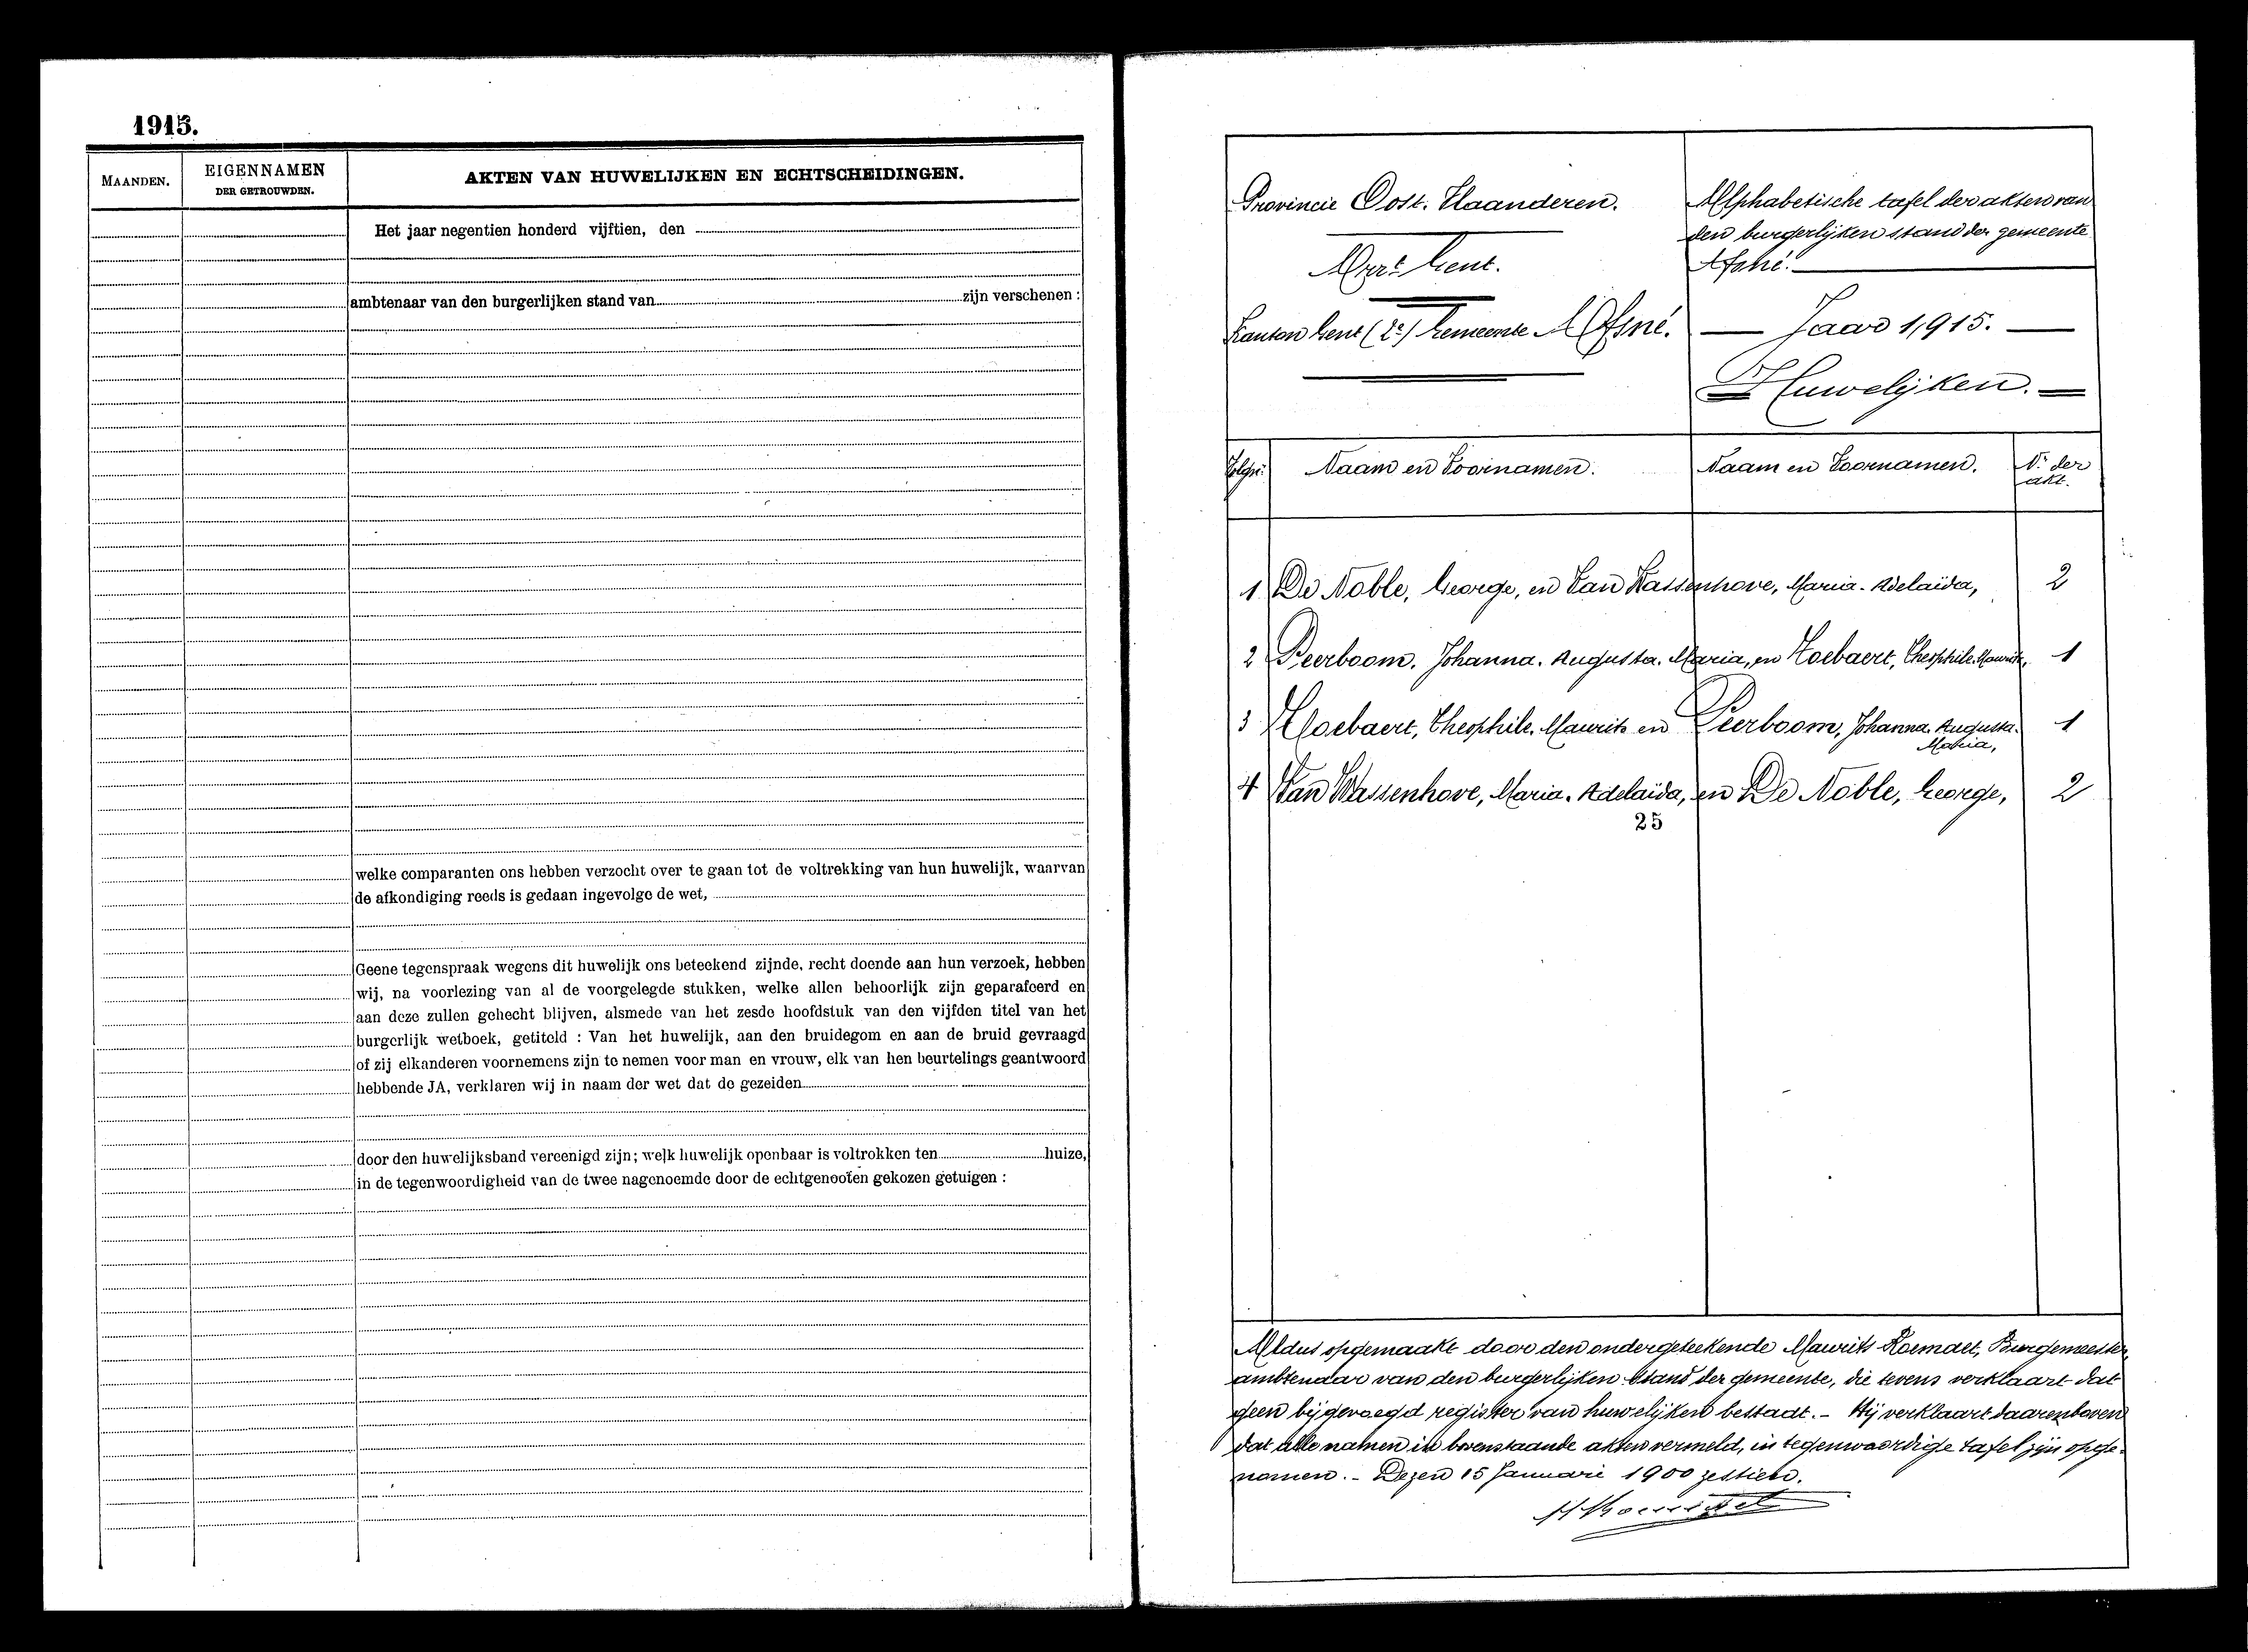 1915.
MAANDEN.
EIGENNAMEN
DER GETROUWDEN.
AKTEN VAN HUWELIJKEN EN ECHTSCHEIDINGEN.
Het jaar negentien honderd vijftien, den
ambtenaar van den burgerlijken stand van zijn verschenen :
welke comparanten ons hebben verzocht over te gaan tot de voltrekking van hun huwelijk, waarvan
de afkondiging reeds is gedaan ingevolge de wet,
Geene tegenspraak wegens dit huwelijk ons beteekend zijnde, recht doende aan hun verzoek, hebben
wij, na voorlezing van al de voorgelegde stukken, welke allen behoorlijk zijn geparafeerd en
aan deze zullen gehecht blijven, alsmede van het zesde hoofdstuk van den vijfden titel van het
burgerlijk wetboek, getiteld : Van het huwelijk, aan den bruidegom en aan de bruid gevraagd
of zij elkanderen voornemens zijn te nemen voor man en vrouw, elk van hen beurtelings geantwoord
hebbende JA, verklaren wij in naam der wet dat de gezeiden
door den huwelijksband vereenigd zijn; welk huwelijk openbaar is voltrokken ten huize,
in de tegenwoordigheid van de twee nagenoemde door de echtgenooten gekozen getuigen :
Provincie Oost. Vlaanderen.
Gent.
Kanton Gent (2e) Gemeente Afsné.
Alphabetische tafel der akten van
den burgerlijken stand der gemeente
Afsné.
Jaar 1,915.
Huwelijken.
Naam en Voornamen.
Naam en Voornamen.
Nr der
akt.
1 De Noble, George, en Van Wassenhove, Maria. Adelaïda, 2
2 Peerboom, Johanna. Augusta. Maria, en Hoebaert, Theophile. Maurits, 1
3 Hoebaert, Theophile. Maurits en Peerboom, Johanna. Augusta. 1
Maria,
4 Van Wassenhove, Maria. Adelaïda, en De Noble, George, 2
25
Aldus opgemaakt door den ondergeteekende Maurits Burgemeester,
ambtenaar van den burgerlijken Stand der gemeente, die tevens verklaart dat
geen bijgevoegd register van huwelijken bestaat. - Hij verklaart daarenboven
dat alle namen in bovenstaande akten vermeld, in tegenwoordige tafel zijn opge-
nomen. - Dezen 15 Januari 1900 zestien.